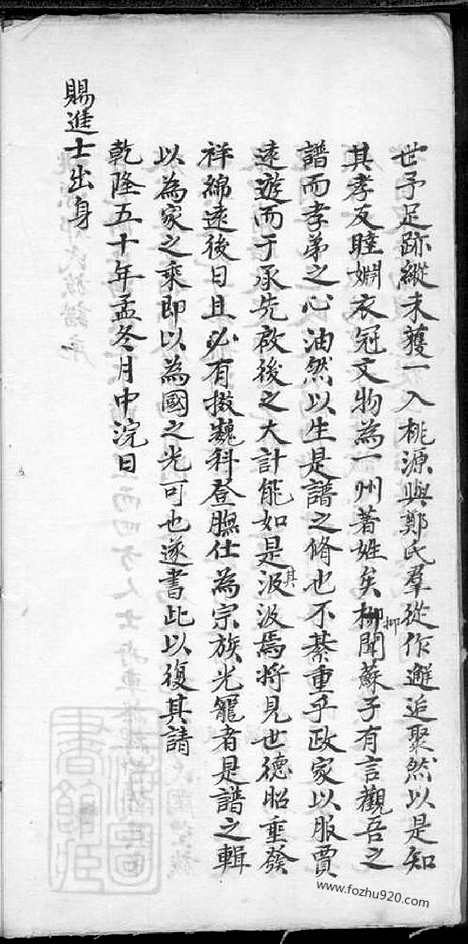 世予足跡縱未獲一入桃源與鄭氏羣從作邂逅聚然以是知
其孝友睦婣衣冠文物為一州著姓矣柳聞蘇子有言觀吾之
抑
譜而孝弟之心油然以生是譜之脩也不綦重乎政家以服賈
遠遊而于承先啟後之大計能如是汲汲焉將見世德昭垂發
其
祥綿遠後日且必有掇巍科登膴仕為宗族光寵者是譜之輯
以為家之乘即以為國之光可也遂書此以復其請
乾隆五十年孟冬月中浣日
賜進士出身
www.fozhu920.com